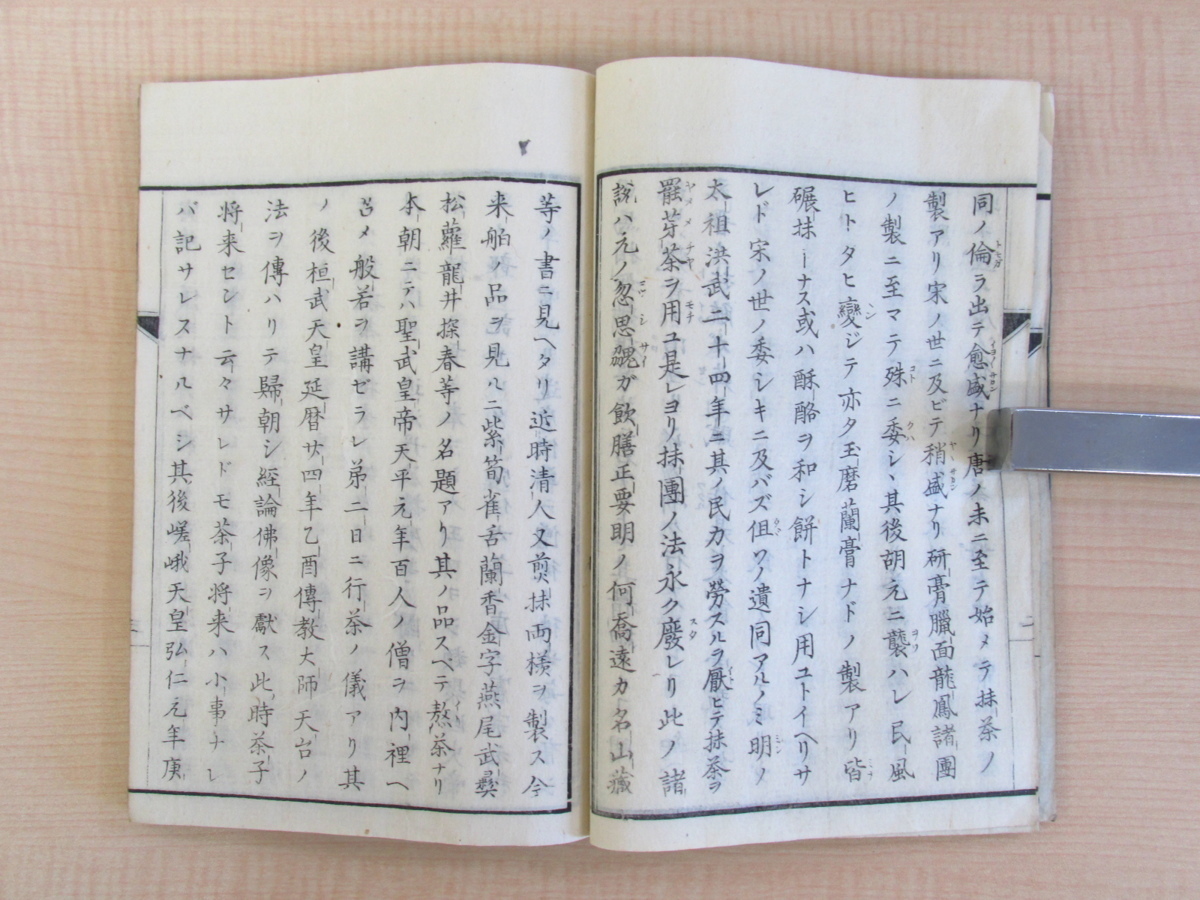 同ノ倫ヲ出テ愈盛ナリ唐ノ末ニ至テ始メテ抹茶ノ
製アリ宋ノ世ニ及ビテ稍盛ナリ研膏臘面龍鳳諸團
ノ製ニ至マテ殊ニ委シ、其後胡元ニ襲ハレ民風
ヒトタヒ變ジテ亦タ玉磨蘭膏ナドノ製アリ皆
碾抹ーナス或ハ酥酪ヲ和シ餅トナシ用ユトイヘリサ
レド宋ノ世ノ委シキニ及バズ但ワノ遺同アルノミ明ノ
太祖洪武二十四年ニ其ノ民力ヲ勞スルヲ厭ヒテ抹茶ヲ
罷芽茶ヲ用ユ是レヨリ抹團ノ法永ク廢レリ此ノ諸
説ハ元ノ忽思飂ガ飲膳正要明ノ何喬遠カ名山藏
等ノ書ニ見ヘタリ近時清人又煎抹両様ヲ製ス今
来舶ノ品ヲ見ルニ紫筍雀舌蘭香金字燕尾武彝
松蘿龍井探春等ノ名題アリ其ノ品スベテ熬茶ナリ
本朝ニテハ聖武皇帝天平元年百人ノ僧ヲ内裡ヘ
召メ般若ヲ講ゼラレ弟二日ニ行茶ノ儀アリ其
ノ後桓武天皇延暦廿四年乙酉傳教大師天台ノ
法ヲ傳ハリテ歸朝シ經論佛像ヲ獻ス此時茶子
将来セント云々サレドモ茶子将来ハ小事ナレ
バ記サレスナルベシ其後嵯峨天皇弘仁元年庚